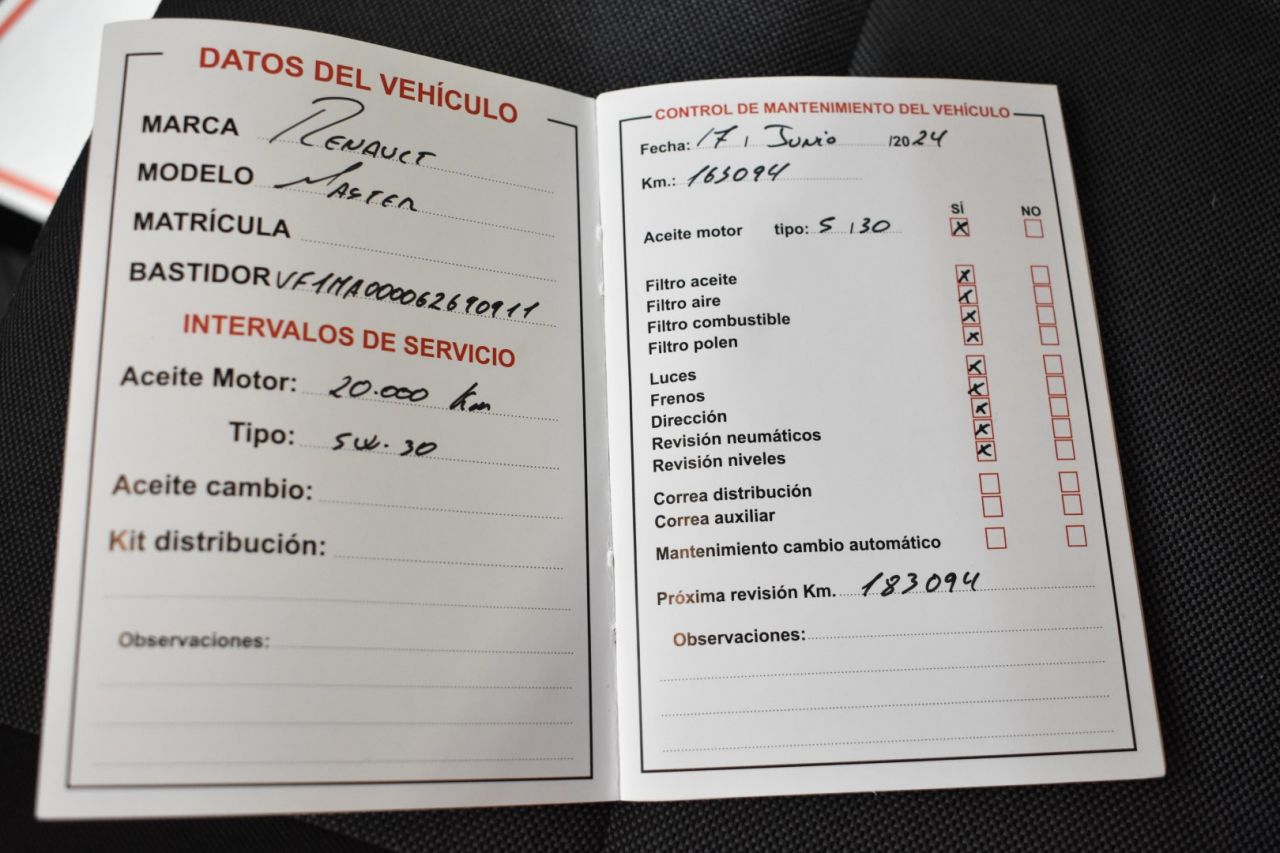 DATOS DEL VEHÍCULO
MARCA RENAULT
MODELO MASTER
MATRÍCULA
BASTIDOR VF1MA000062690911
INTERVALOS DE SERVICIO
Aceite Motor: 20.000 Km
Tipo: 5W.30
Aceite cambio:
Kit distribución:
Observaciones:
CONTROL DE MANTENIMIENTO DEL VEHÍCULO
Fecha: 17 / Junio /2024
Km.: 163094
SÍ NO
Aceite motor tipo: 5 / 30 X
Filtro aceite X
Filtro aire X
Filtro combustible X
Filtro polen X
Luces X
Frenos X
Dirección X
Revisión neumáticos X
Revisión niveles X
Correa distribución
Correa auxiliar
Mantenimiento cambio automático
Próxima revisión Km. 183094
Observaciones: